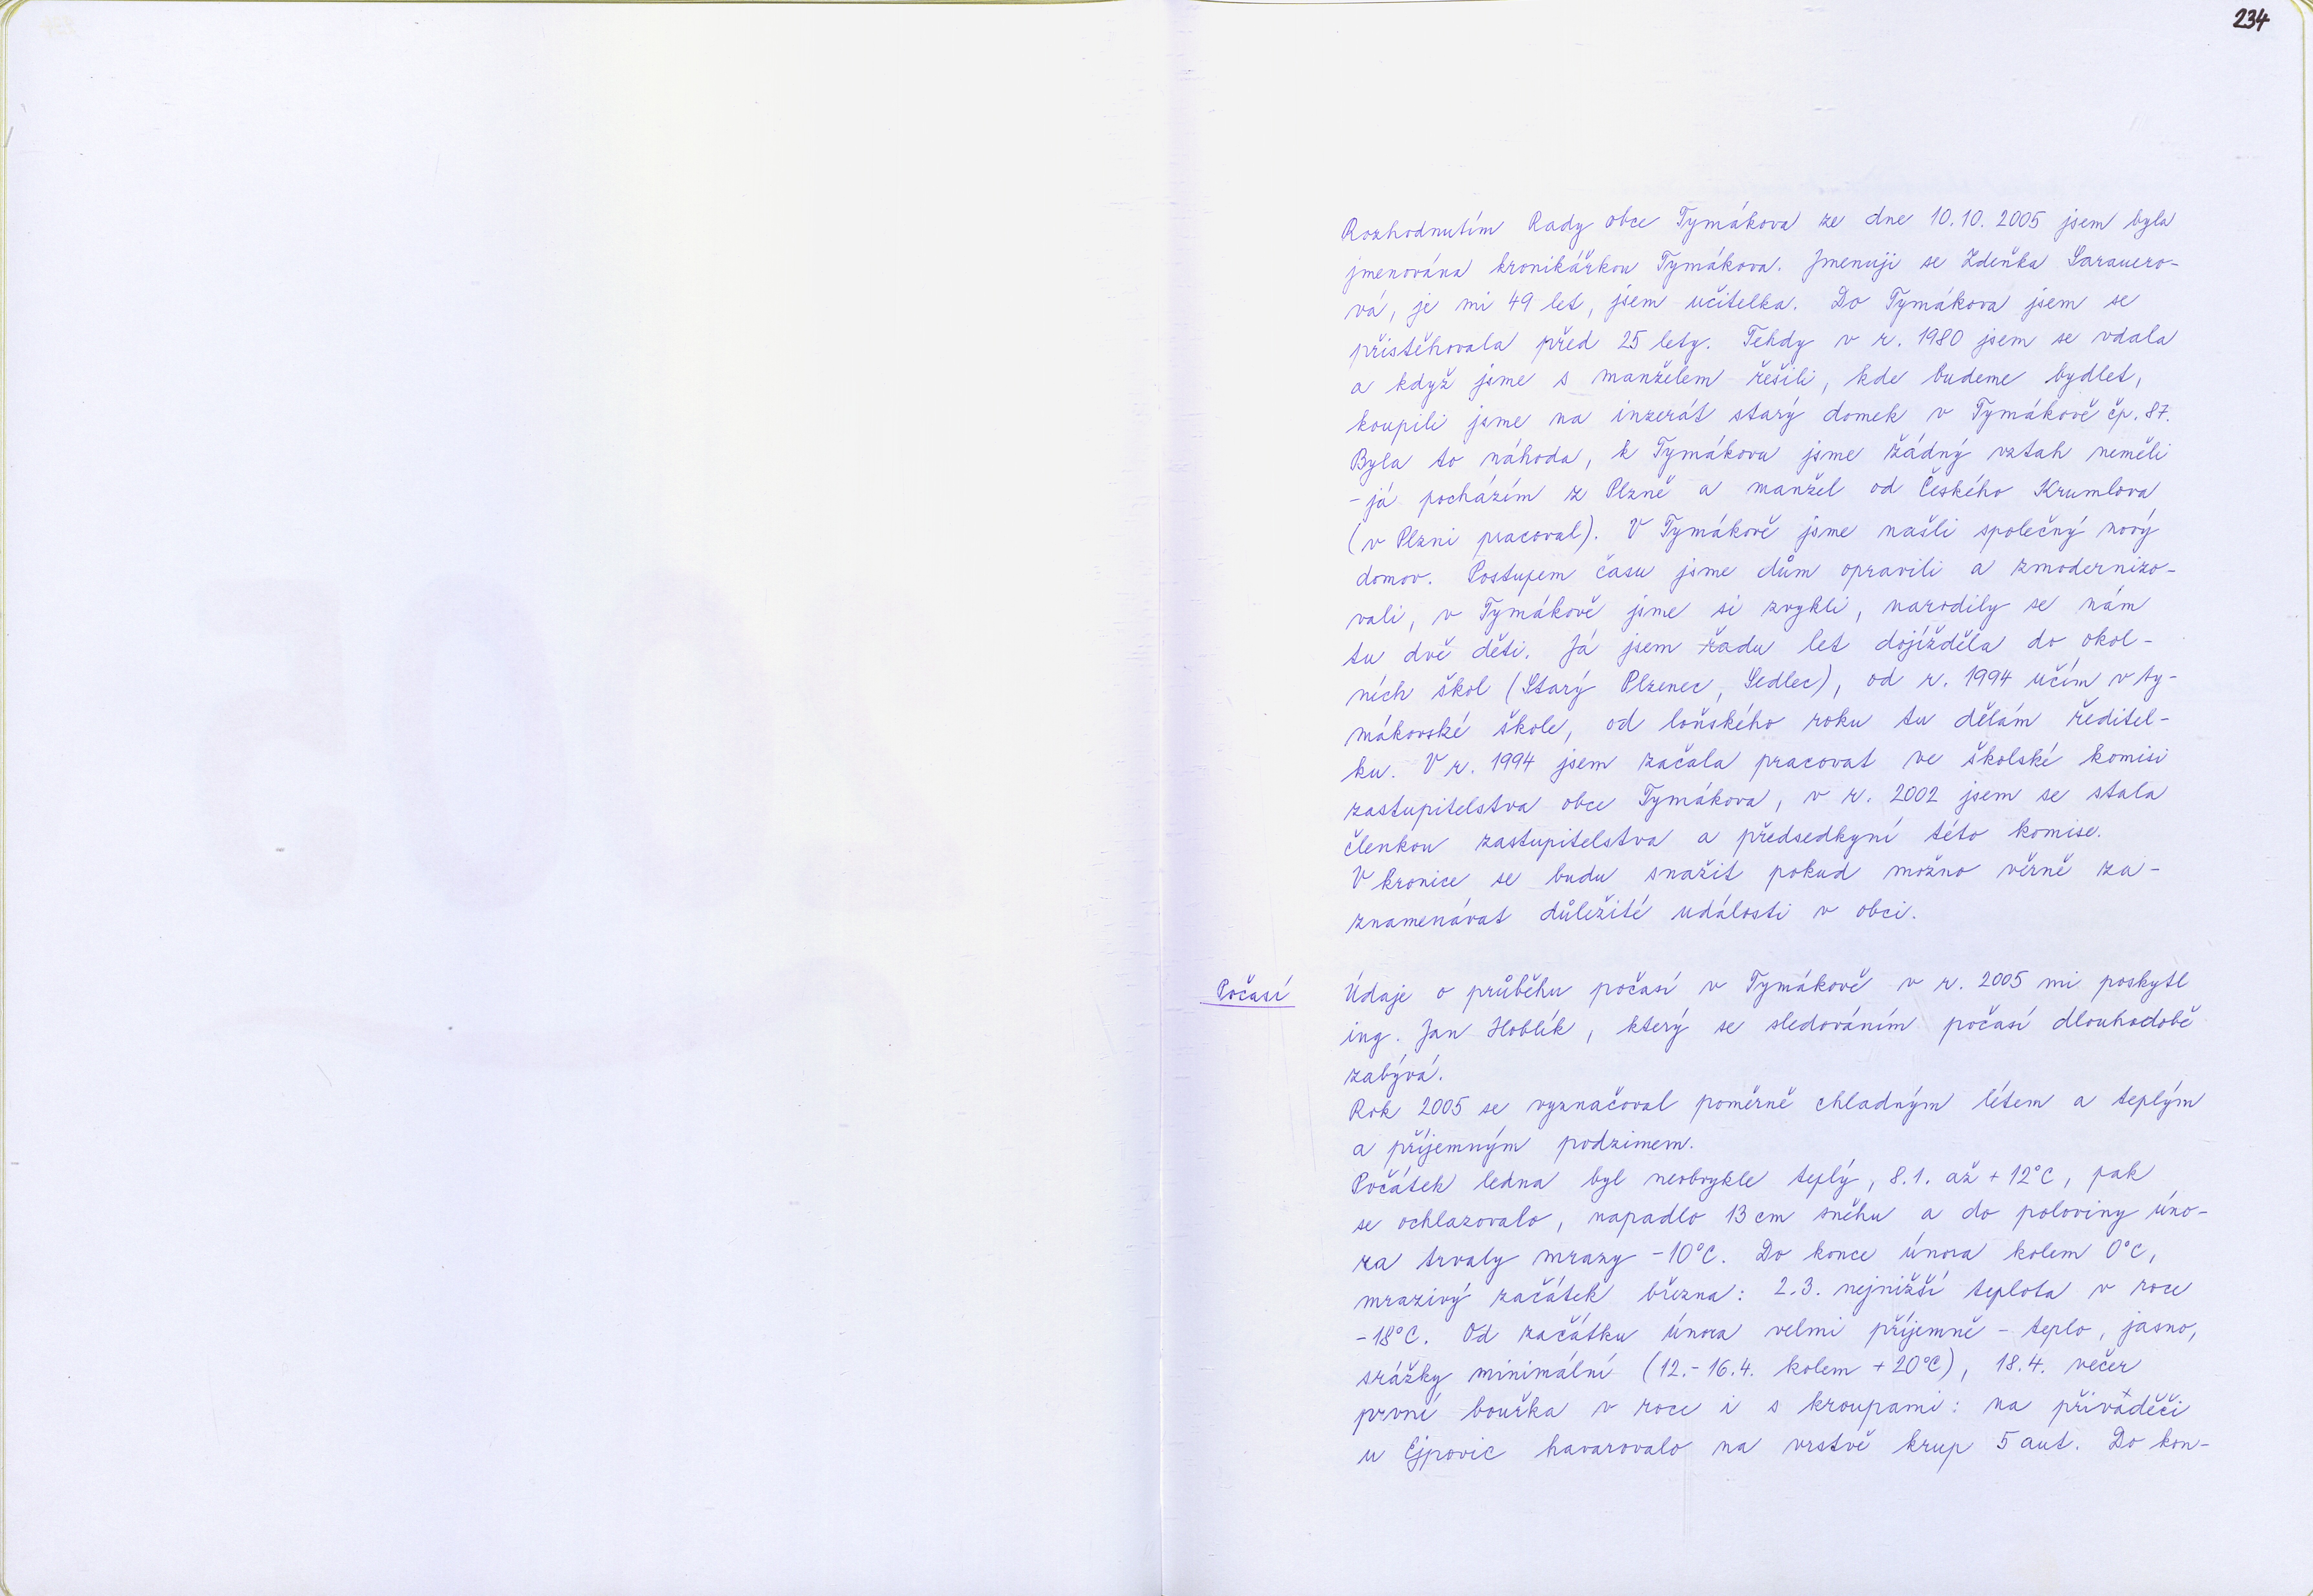 234
Rozhodnutím Rady obce Tymákova ze dne 10.10. 2005 jsem byla
jmenována kronikářkou Tymákova. Jmenuji se Zdeňka Sarauero-
vá, je mi 49 let, jsem učitelka. Do Tymákova jsem se
přistěhovala před 25 lety. Tehdy v r. 1980 jsem se vdala
a když jsme s manželem řešili, kde budeme bydlet,
koupili jsme na inzerát starý domek v Tymákově čp. 87.
Byla to náhoda, k Tymákovu jsme žádný vztah neměli
- já pocházím z Plzně a manžel od Českého Krumlova
(v Plzni pracoval). V Tymákově jsme našli společný nový
domov. Postupem času jsme dům opravili a zmodernizo-
vali, v Tymákově jsme si zvykli, narodily se nám
tu dvě děti. Já jsem řadu let dojížděla do okol-
ních škol (Starý Plzenec, Sedlec), od r. 1994 učím v ty-
mákovské škole, od loňského roku tu dělám ředitel-
ku. V r. 1994 jsem začala pracovat ve školské komisi
zastupitelstva obce Tymákova, v r. 2002 jsem se stala
členkou zastupitelstva a předsedkyní této komise.
V kronice se budu snažit pokud možno věrně za-
znamenávat důležité události v obci.
Počasí
Údaje o průběhu počasí v Tymákově v r. 2005 mi poskytl
ing. Jan Hoblík, který se sledováním počasí dlouhodobě
zabývá.
Rok 2005 se vyznačoval poměrně chladným létem a teplým
a příjemným podzimem.
Počátek ledna byl neobvykle teplý, 8.1. až +12°C, pak
se ochlazovalo, napadlo 13 cm sněhu a do poloviny úno-
ra trvaly mrazy -10°C. Do konce února kolem 0°C,
mrazivý začátek března: 2.3. nejnižší teplota v roce
-18°C. Od začátku února velmi příjemně - teplo, jasno,
srážky minimální (12.-16.4. kolem +20°C), 18.4. večer
první bouřka v roce i s kroupami: na přivaděči
u Ejpovic havarovalo na vrstvě krup 5 aut. Do kon-